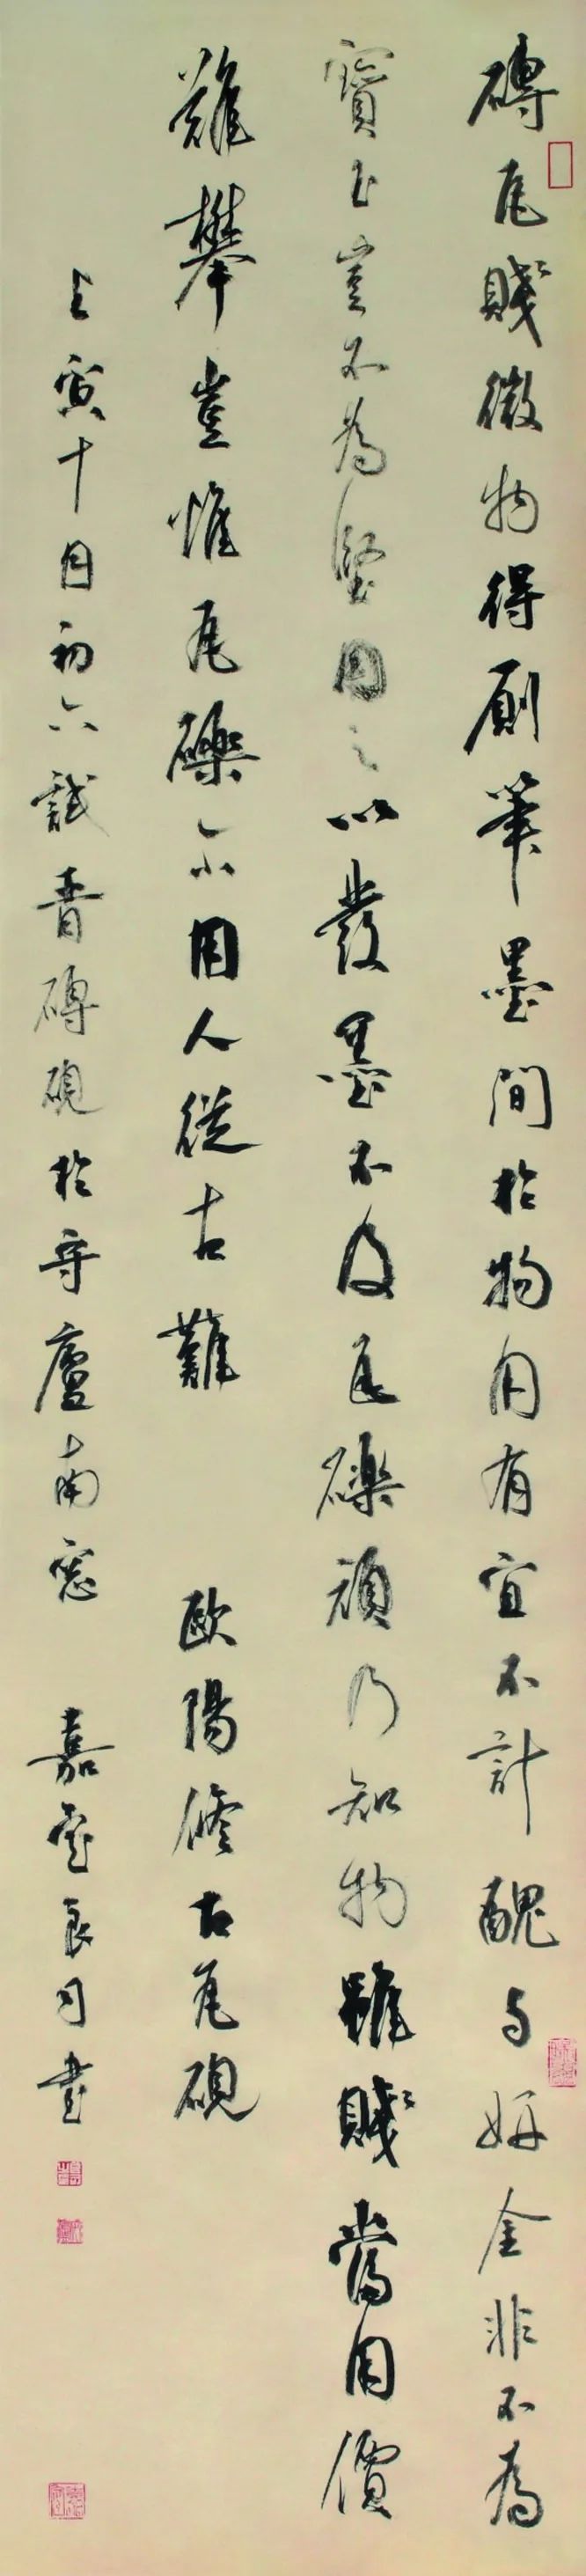 磚瓦賤微物得廁筆墨間於物用有宜不計醜與妍金非不為
寶玉豈不為堅用之以發墨不及瓦礫頑乃知物雖賤當用價
難攀豈惟瓦礫尒用人從古難 歐陽修古瓦硯
壬寅十月初六試青磚硯於守廬南窗 嘉堂良司書